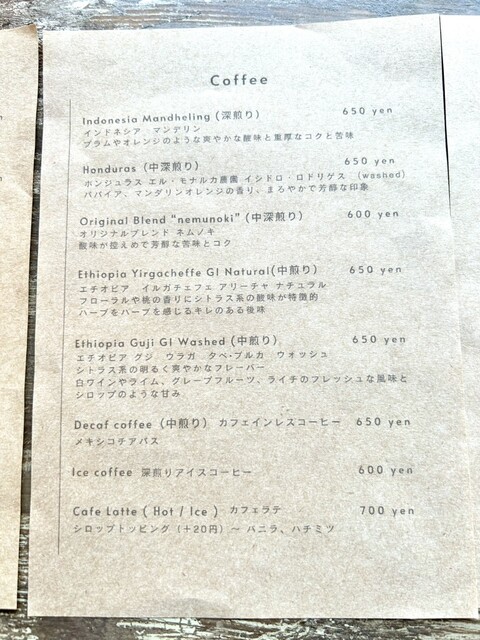 Coffee
Indonesia Mandheling (深煎り) 650 yen
インドネシア マンデリン
プラムやオレンジのような爽やかな酸味と重厚なコクと苦味
Honduras (中深煎り) 650 yen
ホンジュラス エル・モナルカ農園 イシドロ・ロドリゲス (washed)
パパイア、マンダリンオレンジの香り、まろやかで芳醇な印象
Original Blend “nemunoki” (中深煎り) 600 yen
オリジナルブレンド ネムノキ
酸味が控えめで芳醇な苦味とコク
Ethiopia Yirgacheffe G1 Natural(中煎り) 650 yen
エチオピア イルガチェフェ アリーチャ ナチュラル
フローラルや桃の香りにシトラス系の酸味が特徴的
ハーブをハーブを感じるキレのある後味
Ethiopia Guji G1 Washed (中煎り) 650 yen
エチオピア グジ ウラガ タベ・ブルカ ウォッシュ
シトラス系の明るく爽やかなフレーバー
白ワインやライム、グレープフルーツ、ライチのフレッシュな風味と
シロップのような甘み
Decaf coffee (中煎り) カフェインレスコーヒー 650 yen
メキシコチアパス
Ice coffee 深煎りアイスコーヒー 600 yen
Cafe Latte ( Hot / Ice ) カフェラテ 700 yen
シロップトッピング (+20円) ～ バニラ、ハチミツ